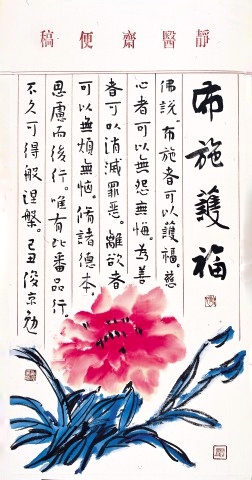 靜醫齋便稿
布施護福
佛說。布施者可以護福。慈
心者可以無怨無悔。為善
者可以消滅罪惡。離欲者
可以無煩無惱。脩諸德本。
思慮而後行。唯有此番品行。
不久可得般涅槃。己丑俊京勉